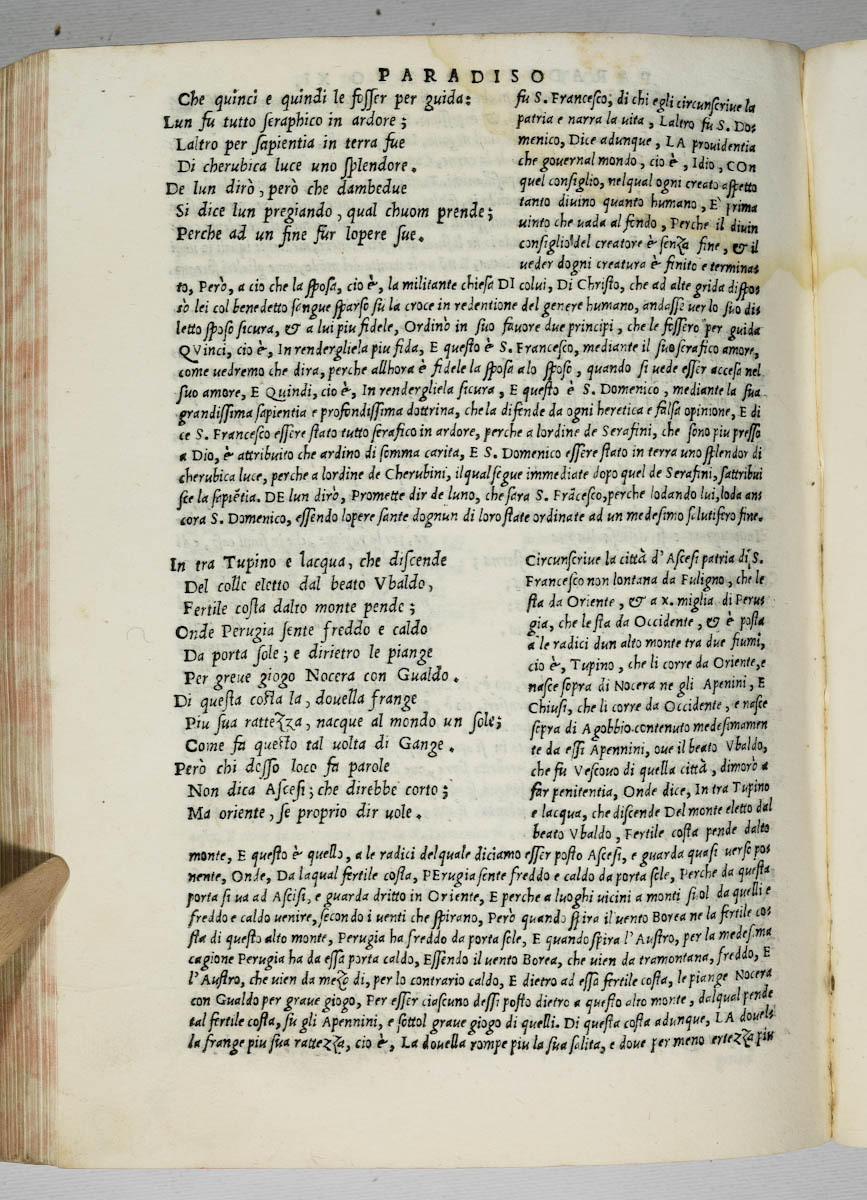 PARADISO
Che quinci e quindi le fosser per guida:
Lun fu tutto seraphico in ardore;
Laltro per sapientia in terra fue
Di cherubica luce uno splendore.
De lun dirò, però che dambedue
Si dice lun pregiando, qual chuom prende;
Perche ad un fine fur lopere sue.
fu S. Francesco, di chi egli circunscriue la
patria e narra la uita, Laltro fu S. Do=
menico, Dice adunque, LA prouidentia
che gouernal mondo, cio è, Idio, COn
quel consiglio, nelqual ogni creato aspetto
tanto diuino quanto humano, E prima
uinto che uada al fondo, Perche il diuin
consiglio del creatore è senza fine, & il
ueder dogni creatura è finito e terminas
to, Però, a cio che la sposa, cio è, la militante chiesa DI colui, Di Christo, che ad alte grida dispos
sò lei col benedetto sangue sparso su la croce in redentione del genere humano, andasse uer lo suo di=
letto sposo sicura, & a lui piu fidele, Ordinò in suo fauore due principi, che le fossero per guida
QVinci, cio è, In rendergliela piu fida, E questo è S. Francesco, mediante il suo serafico amore,
come uedremo che dira, perche allhora è fidele la sposa a lo sposo, quando si uede esser accesa nel
suo amore, E Quindi, cio è, In rendergliela sicura, E questo è S. Domenico, mediante la sua
grandissima sapientia e profondissima dottrina, che la difende da ogni heretica e falsa opinione, E di
ce S. Francesco essere stato tutto serafico in ardore, perche a lordine de Serafini, che sono piu presso
a Dio, è attribuito che ardino di somma carita, E S. Domenico essere stato in terra uno splendor di
cherubica luce, perche a lordine de Cherubini, il qual segue immediate dopo quel de Serafini, sattribui
sce la sapiẽtia. DE lun dirò, Promette dir de luno, che sara S. Frãcesco, perche lodando lui, loda an=
cora S. Domenico, essendo lopere sante dognun di loro state ordinate ad un medesimo salutifero fine.
In tra Tupino e lacqua, che discende
Del colle eletto dal beato Vbaldo,
Fertile costa dalto monte pende;
Onde Perugia sente freddo e caldo
Da porta sole; e dirietro le piange
Per greue giogo Nocera con Gualdo.
Di questa costa la, douella frange
Piu sua rattezza, nacque al mondo un sole;
Come fa questo tal uolta di Gange.
Però chi desso loco fa parole
Non dica Ascesi; che direbbe corto;
Ma oriente, se proprio dir uole.
Circunscriue la città d'Ascesi patria di S.
Francesco non lontana da Fuligno, che le
sta da Oriente, & a x. miglia di Peru=
gia, che le sta da Occidente, & è posta
a le radici dun alto monte tra due fiumi,
cio è, Tupino, che li corre da Oriente, e
nasce sopra di Nocera ne gli Apenini, E
Chiusi, che li corre da Occidente, e nasce
sopra di Agobbio contenuto medesimamen
te da essi Apennini, oue il beato Vbaldo,
che fu Vescouo di quella città, dimorò a
far penitentia, Onde dice, In tra Tupino
e lacqua, che discende Del monte eletto dal
beato Vbaldo, Fertile costa pende dalto
monte, E questo è quello, a le radici delquale diciamo esser posto Ascesi, e guarda quasi uerso po=
nente, Onde, Da laqual fertile costa, PErugia sente freddo e caldo da porta sole, Perche da questa
porta si ua ad Ascisi, e guarda dritto in Oriente, E perche a luoghi uicini a monti suol da quelli e
freddo e caldo uenire, secondo i uenti che spirano, Però quando spira il uento Borea ne la fertile co=
sta di questo alto monte, Perugia ha freddo da porta sole, E quando spira l'Austro, per la medesima
cagione Perugia ha da essa porta caldo, Essendo il uento Borea, che uien da tramontana, freddo, E
l'Austro, che uien da mezo di, per lo contrario caldo, E dietro ad essa fertile costa, le piange Nocera
con Gualdo per graue giogo, Per esser ciascuno dessi posto dietro a questo alto monte, dalqual pende
tal fertile costa, su gli Apennini, e sottol graue giogo di quelli. Di questa costa adunque, LA douel=
la frange piu sua rattezza, cio è, La douella rompe piu la sua salita, e doue per meno ertezza piu